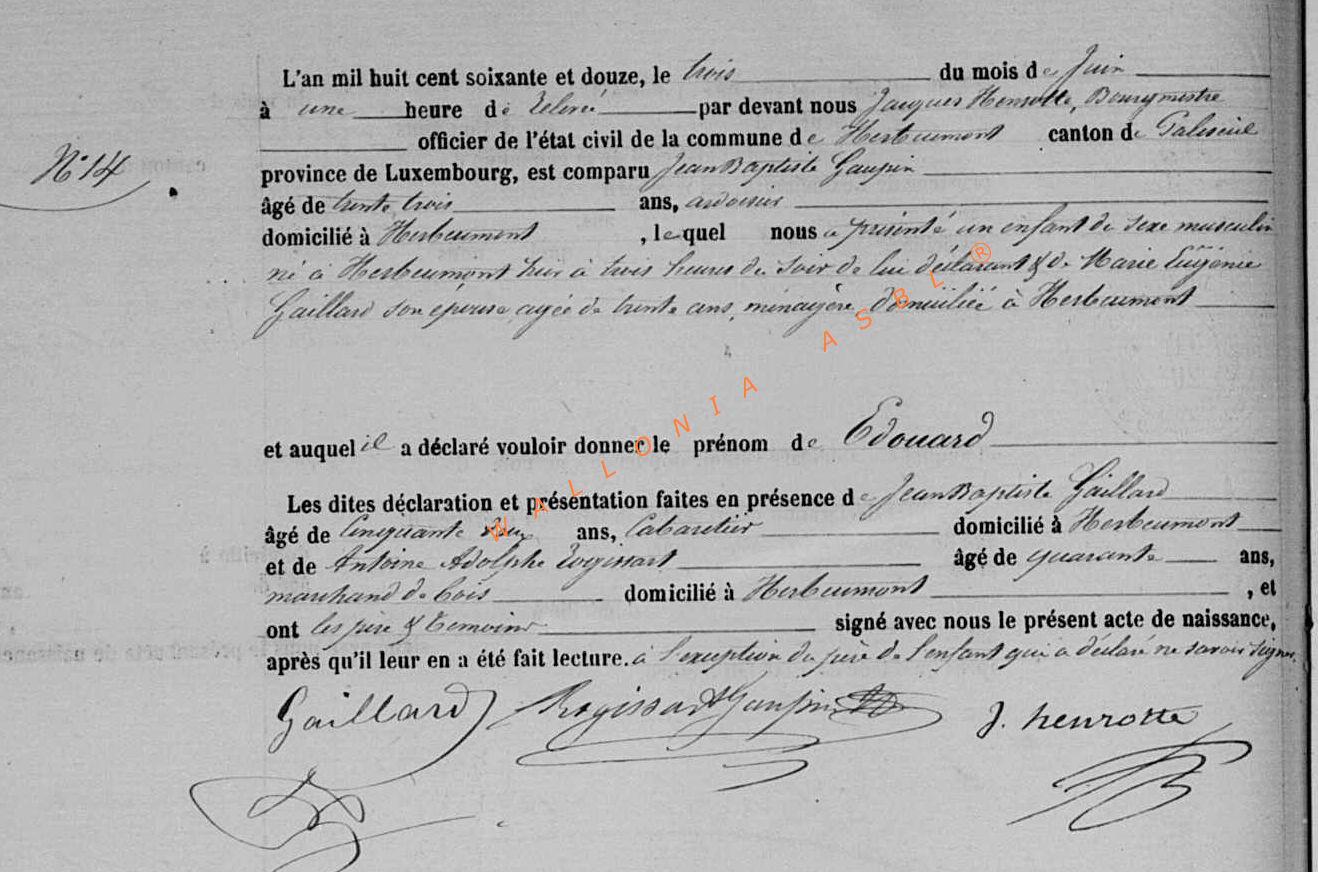 L'an mil huit cent soixante et douze, le trois du mois de Juin
à une heure de relevé par devant nous Jacques Henrotte, Bourgmestre
officier de l'état civil de la commune de Herbeumont canton de Paliseul
N° 14
province de Luxembourg, est comparu Jean Baptiste Gaupin
âgé de trente trois ans, ardoisier
domicilié à Herbeumont, lequel nous a présenté un enfant de sexe masculin
né à Herbeumont hier à trois heures du soir de lui déclarant & de Marie Eugénie
Gaillard son épouse, agée de trente ans, ménagère, domiciliée à Herbeumont
et auquel il a déclaré vouloir donner le prénom de Edouard
Les dites déclaration et présentation faites en présence de Jean Baptiste Gaillard
âgé de Cinquante deux ans, Cabaretier domicilié à Herbeumont
et de Antoine Adolphe Rogissart âgé de quarante ans,
marchand de bois domicilié à Herbeumont, et
ont les père & temoins signé avec nous le présent acte de naissance,
après qu'il leur en a été fait lecture. à l'exception du père de l'enfant qui a déclaré ne savoir signer.
Gaillard Rogissart Gaupin J. henrotte
WALLONIA ASBL ®